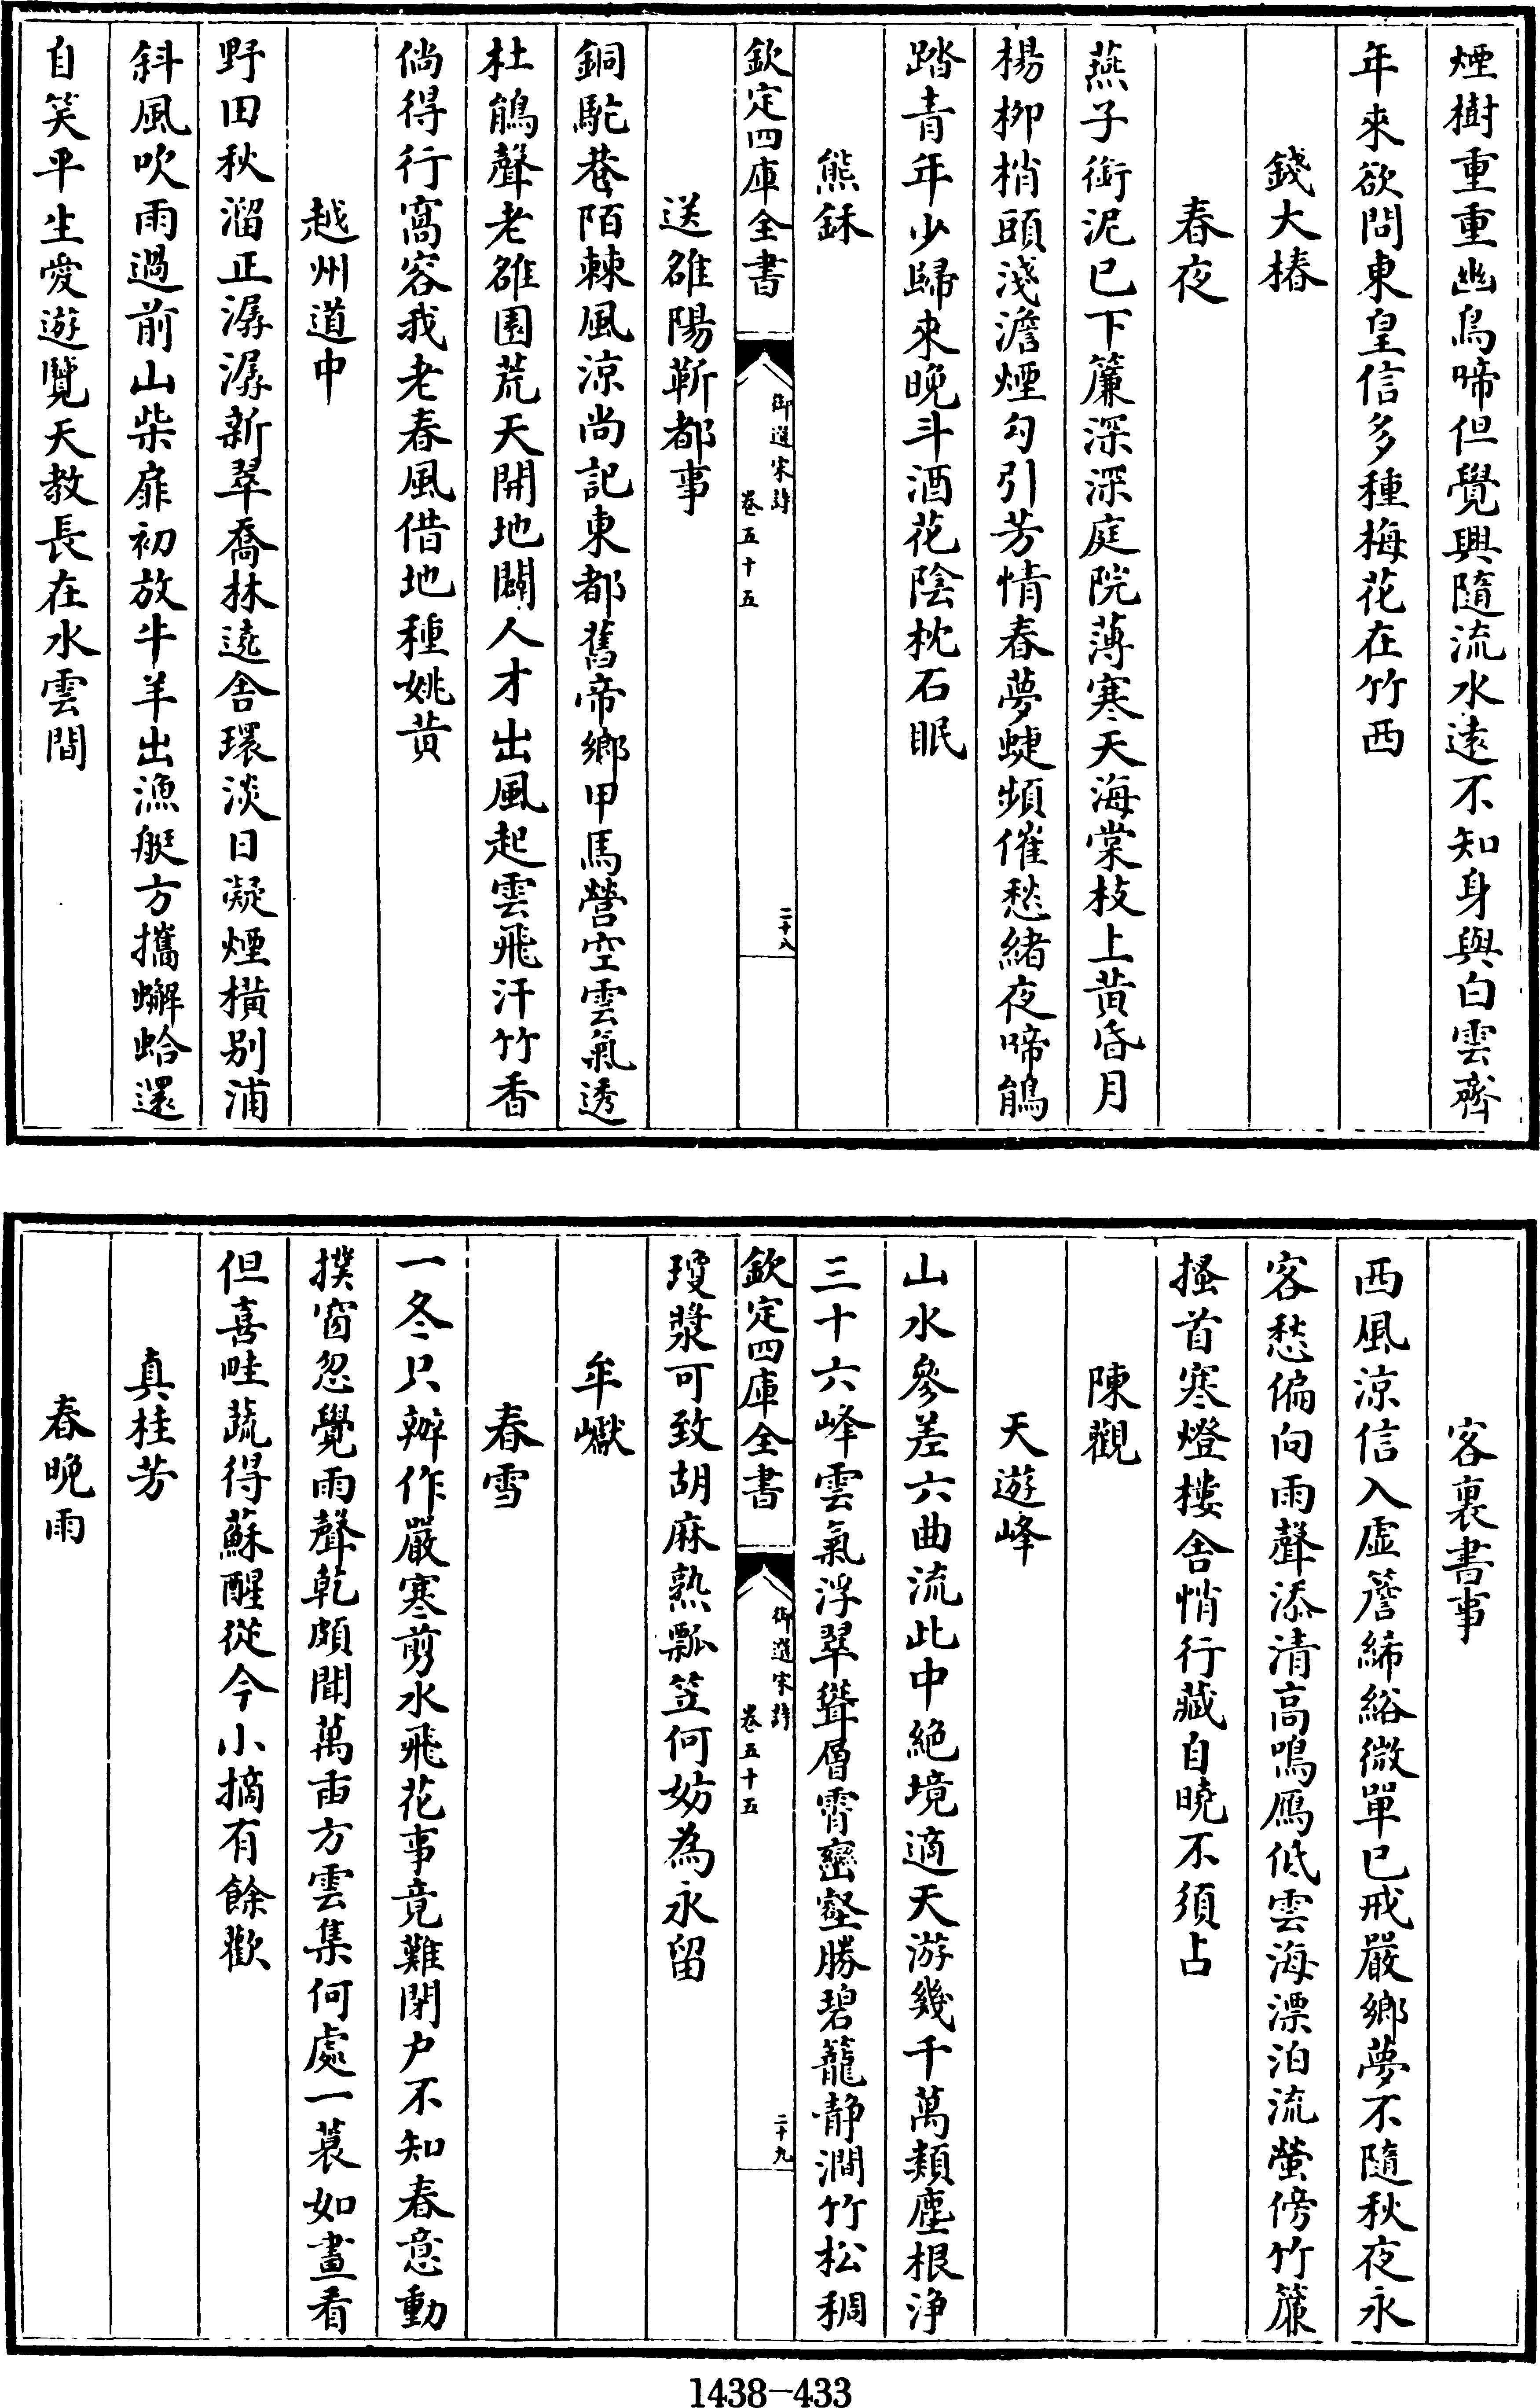 煙樹重重幽鳥啼但覺興隨流水遠不知身與白雲齊
年來欲問東皇信多種梅花在竹西
錢大椿
春夜
燕子銜泥已下簾深深庭院薄寒天海棠枝上黃昏月
楊柳梢頭淺澹煙勾引芳情春夢蜨頻催愁緒夜啼鵑
踏青年少歸來晚斗酒花陰枕石眠
熊鉌
欽定四庫全書
御選宋詩
卷五十五
二十八
送雒陽靳都事
銅駝巷陌棘風涼尚記東都舊帝鄉甲馬營空雲氣透
杜鵑聲老雒園荒天開地闢人才出風起雲飛汗竹香
倘得行窩容我老春風借地種姚黃
越州道中
野田秋溜正潺潺新翠喬林遶舍環淡日凝煙橫別浦
斜風吹雨過前山柴扉初放牛羊出漁艇方攜蠏蛤還
自笑平生愛遊覽天教長在水雲間
客裏書事
西風涼信入虛簷絺綌微單已戒嚴鄉夢不隨秋夜永
客愁偏向雨聲添清高鳴鴈低雲海漂泊流螢傍竹簾
搔首寒燈樓舍悄行藏自曉不須占
陳觀
天遊峰
山水參差六曲流此中絕境適天游幾千萬類塵根淨
三十六峰雲氣浮翠聳層霄巒壑勝碧籠靜澗竹松稠
欽定四庫全書
御選宋詩
卷五十五
二十九
瓊漿可致胡麻熟瓢笠何妨為永留
牟巘
春雪
一冬只辦作嚴寒剪水飛花事竟難閉户不知春意動
撲窗忽覺雨聲乾頗聞萬甾方雲集何處一蓑如畫看
但喜畦蔬得蘇醒從今小摘有餘歡
真桂芳
春晚雨
1438-433